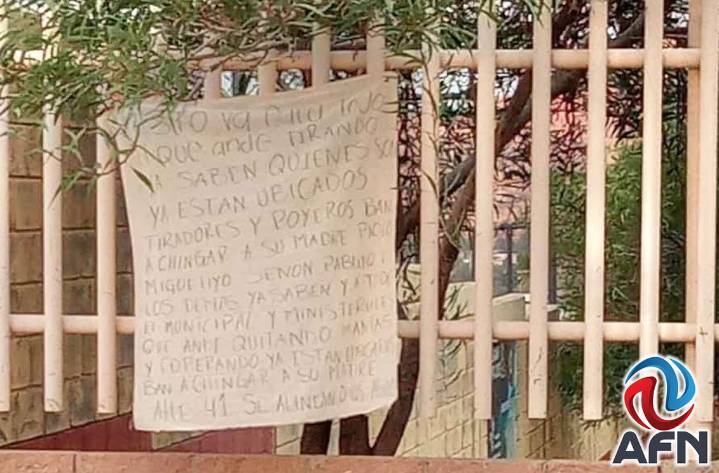 ESTO VA PARA TODO
QUE ANDE TIRANDO
YA SABEN QUIENES SON
YA ESTAN UBICADOS
TIRADORES Y POYEROS BAN
A CHINGAR A SU MADRE
MIGUELIYO SENON PABLITO Y
LOS DEMAS YA SABEN Y A TODO
EL MUNICIPAL Y MINISTERIALES
QUE ANDE QUITANDO MAÑAS
Y COPERANDO YA ESTAN UBICADOS
BAN A CHINGAR A SU MADRE
41 SE ALINEAN O
AFN